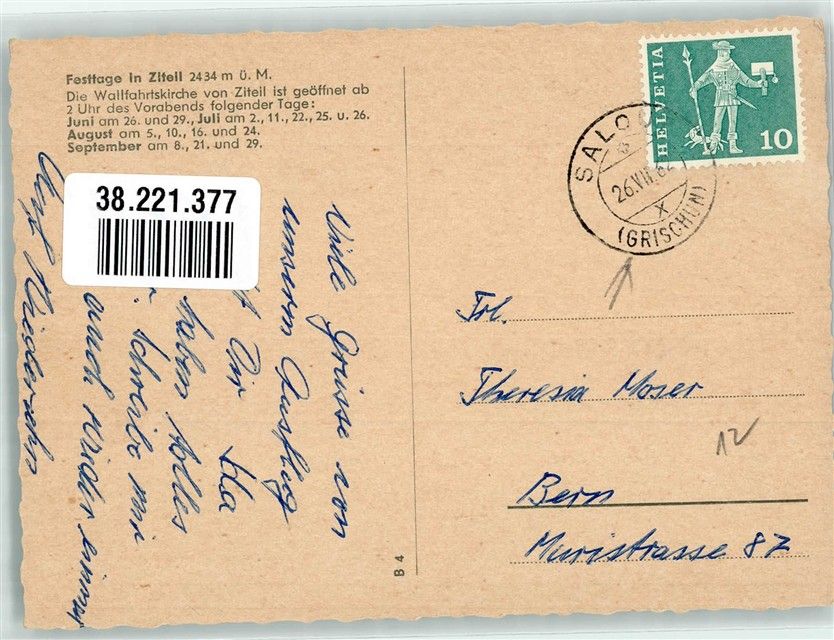 Festtage in Ziteil 2434 m ü. M.
Die Wallfahrtskirche von Ziteil ist geöffnet ab
2 Uhr des Vorabends folgender Tage:
Juni am 26. und 29., Juli am 2., 11., 22., 25. u. 26.
August am 5., 10., 16. und 24.
September am 8., 21. und 29.
38.221.377
Viele Grüsse von
unserm Ausflug
Dir Ida
haben Alles
schreibe mir
auch wieder einmal
Wiedersehn
B 4
HELVETIA
10
26.VII.62
X
(GRISCHUN)
Frl.
Theresia Moser
12
Bern
Muristrasse 87